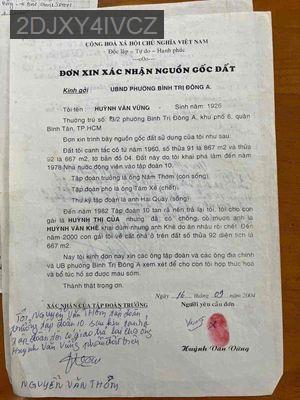 2DJXY4IVCZ
CỘNG HOÀ XÃ HỘI CHỦ NGHĨA VIỆT NAM
Độc lập - Tự do - Hạnh phúc
---oOo---
ĐƠN XIN XÁC NHẬN NGUỒN GỐC ĐẤT
Kính gởi UBND PHƯỜNG BÌNH TRỊ ĐÔNG A.
Tôi tên HUỲNH VĂN VỮNG - Sinh năm: 1926
Thường trú số /2 phường Bình Trị Đông A, khu phố 6, quận
Bình Tân, TP.HCM
Xin trình bày nguồn gốc đất sử dụng của tôi như sau.
Đất tôi canh tác có từ năm 1960, số thửa 91 là 867 m2 và thửa
92 là 667 m2, tờ bản đồ 04. Đất này do tôi khai phá làm đến năm
1978 Nhà nước động viên vào tập đoàn 10.
Tập đoàn trưởng là ông Năm Thơm (còn sống)
Tập đoàn phó là ông Tám Xê (chết)
Thư ký tập đoàn là anh Hai Quây (sống)
Đến năm 1982 Tập đoàn 10 tan rã nên trả lại tôi, tôi cho con
gái là HUỲNH THỊ CÚA nhưng đã có chồng, có mượn anh là
HUỲNH VĂN KHÊ khai dùm nhưng anh Khê do ăn nhậu rồi chết! Đến
năm 2000 con gái tôi về cất nhà ở trên đất số thửa 92 diện tích là
667 m2.
Nay tôi kính đơn này xin các ông tập đoàn và các ông địa chính
và UB phường Bình Trị Đông A xem xét để cho con tôi hợp thức hoá và
bổ túc hồ sơ được mau sớm.
Thành thật trọng ơn.
Ngày 16 tháng 09 năm 2004
XÁC NHẬN CỦA TẬP ĐOÀN TRƯỞNG Người yêu cầu đơn
Tôi, Nguyễn Văn Thơm tập đoàn
trưởng tập đoàn 10 sau khi tan rã
Tập đoàn tôi có giao trả lại cho ông
Huỳnh Văn Vững phần đất trên
Vững
Huỳnh Văn Vững
NGUYỄN VĂN THƠM